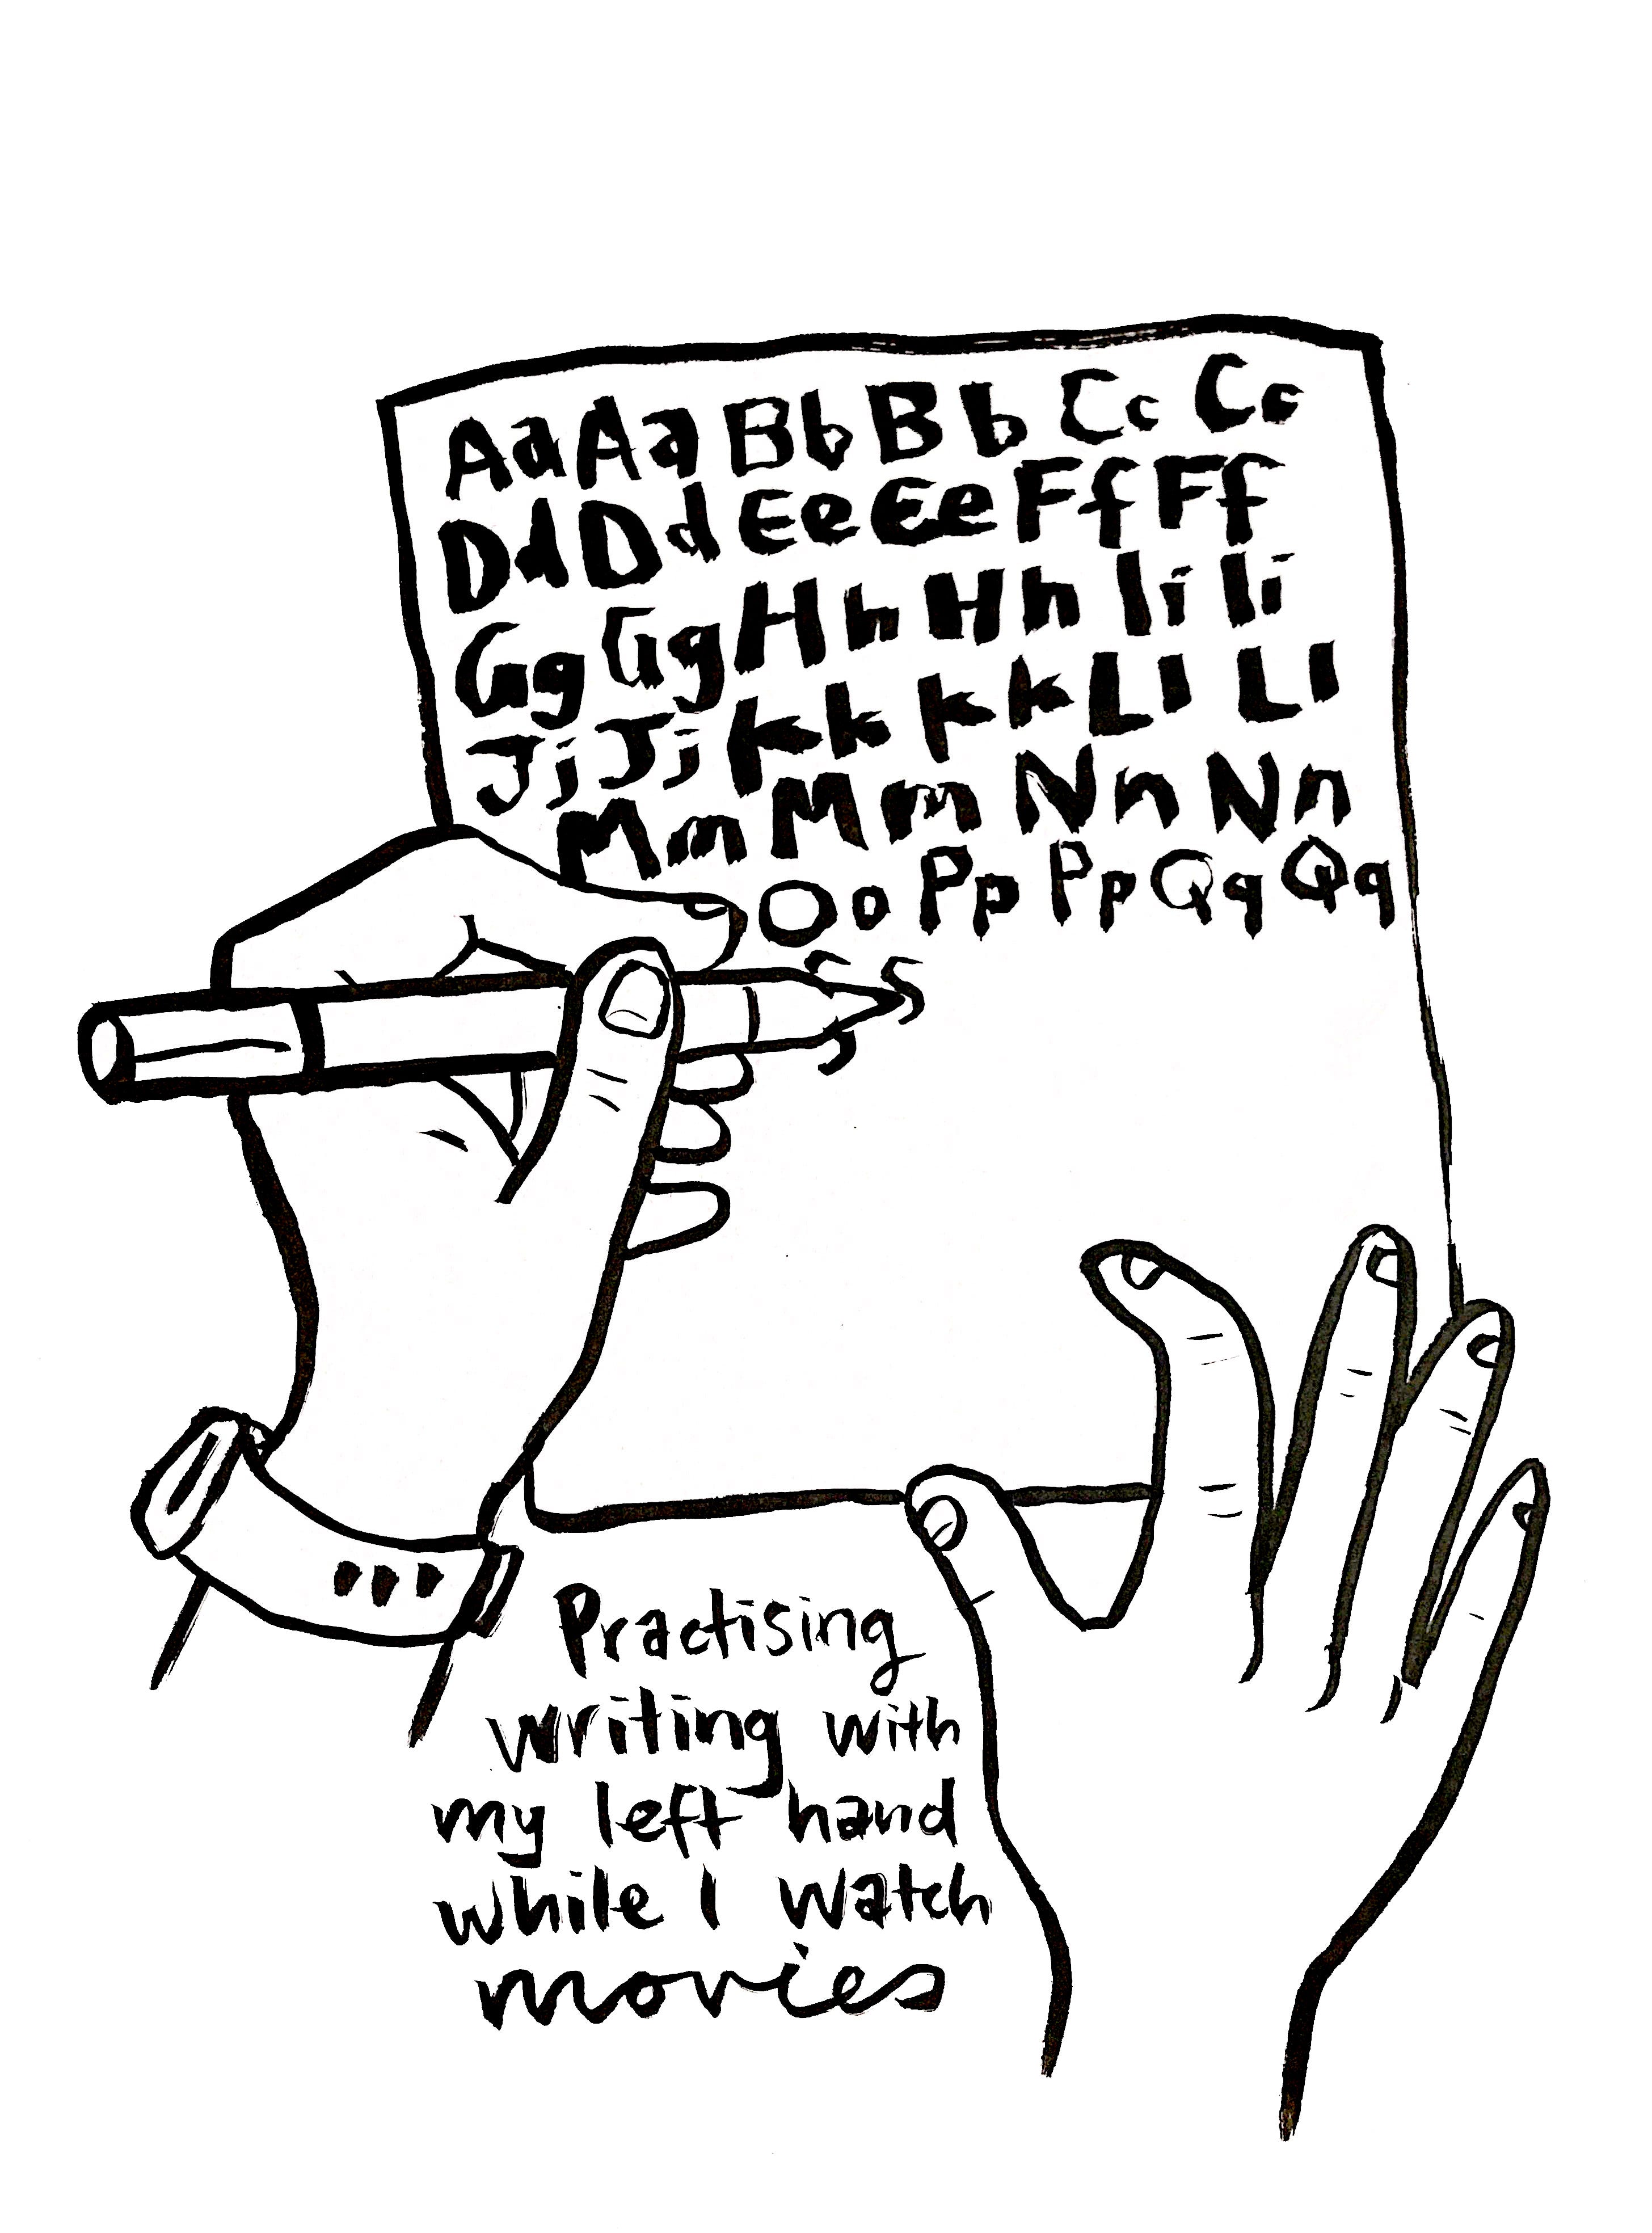 AaAaBbBbCcCc
DdDdEeEeFfFf
GgGgHhHhIiIi
JjJjKkKkLlLl
MmMmNnNn
OoPpPpQqQq
SS
S
Practising
writing with
my left hand
while I watch
movies